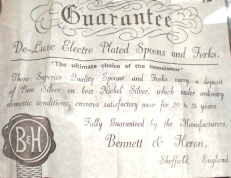 Guarantee
De-Luxe Electro Plated Spoons and Forks.
"The ultimate choice of the connoisseur"
These Superior Quality Spoons and Forks carry a deposit
of Pure Silver on best Nickel Silver, which under ordinary
domestic conditions, ensures satisfactory wear for 20 to 25 years.
Fully Guaranteed by the Manufacturers,
Bennett & Heron,
Sheffield, England.
B&H